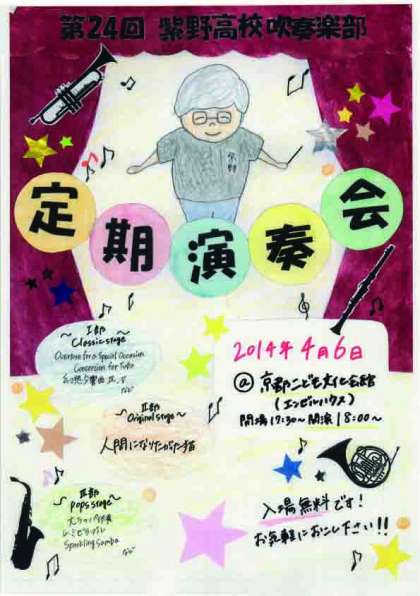 第24回 紫野高校吹奏楽部
定期演奏会
～Ⅰ部～
Classic stage
Overture for a Special Occasion
Concertino for Tuba
など
2014年4月6日
@京都こども文化会館
(エンゼルハウス)
開場17:30～開演18:00～
～Ⅱ部～
Original stage
人間になりたがった猫
～Ⅲ部～
Pops stage
レ・ミゼラブル
Sparkling Samba
など
入場無料です!
お気軽にお越し下さい!!